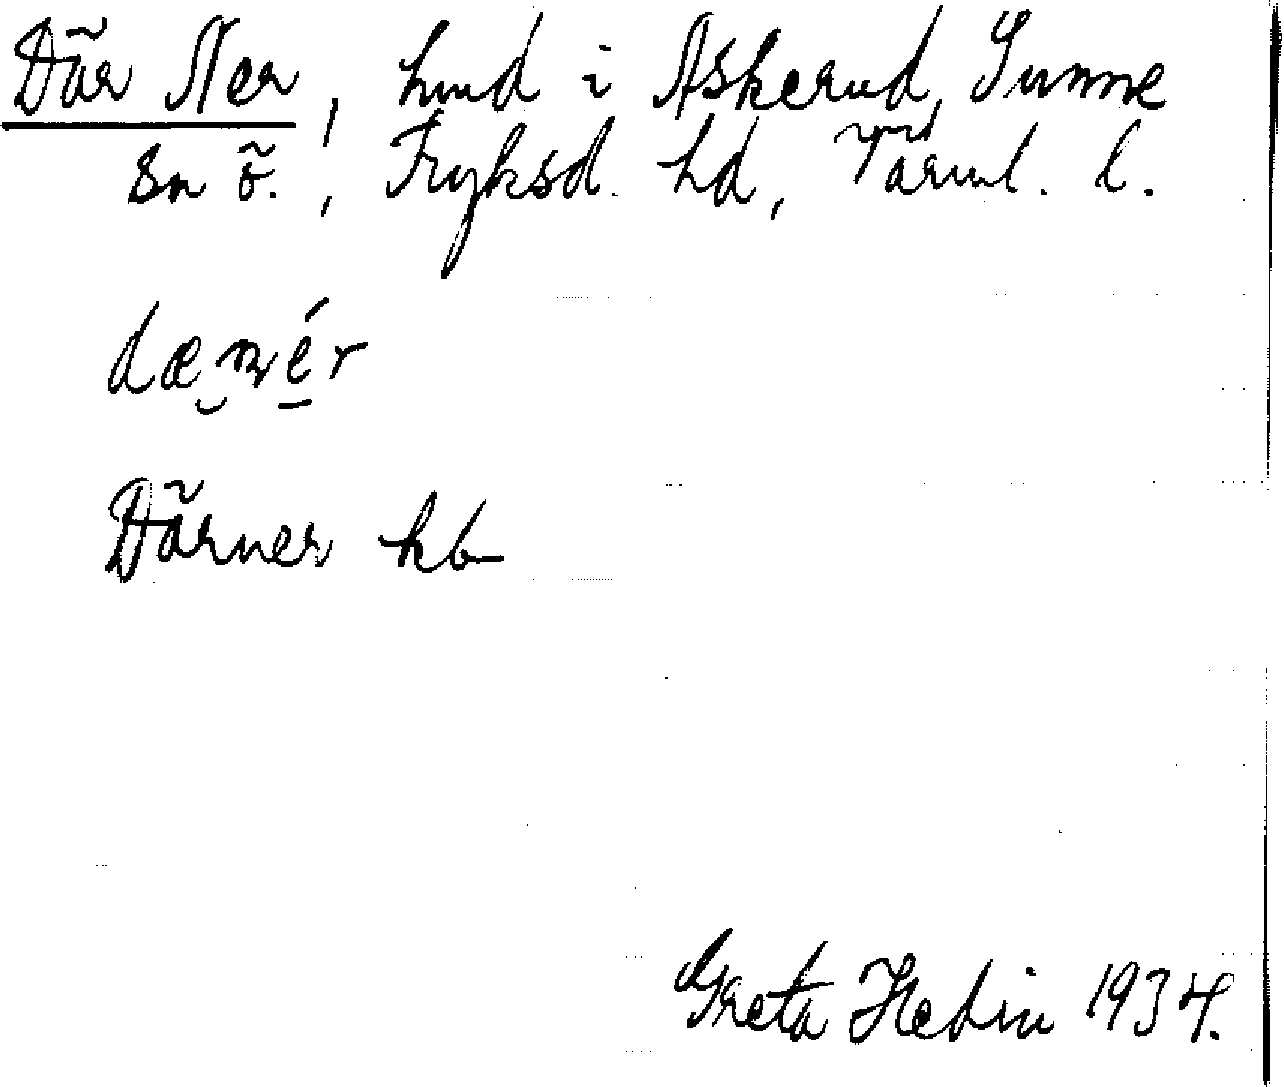 Där Ner, hmd i Askerud, Sunne
sn ö., Fryksd. hd, Värml. l.
dæṇér
Därner hb
Greta Hedin 1934.